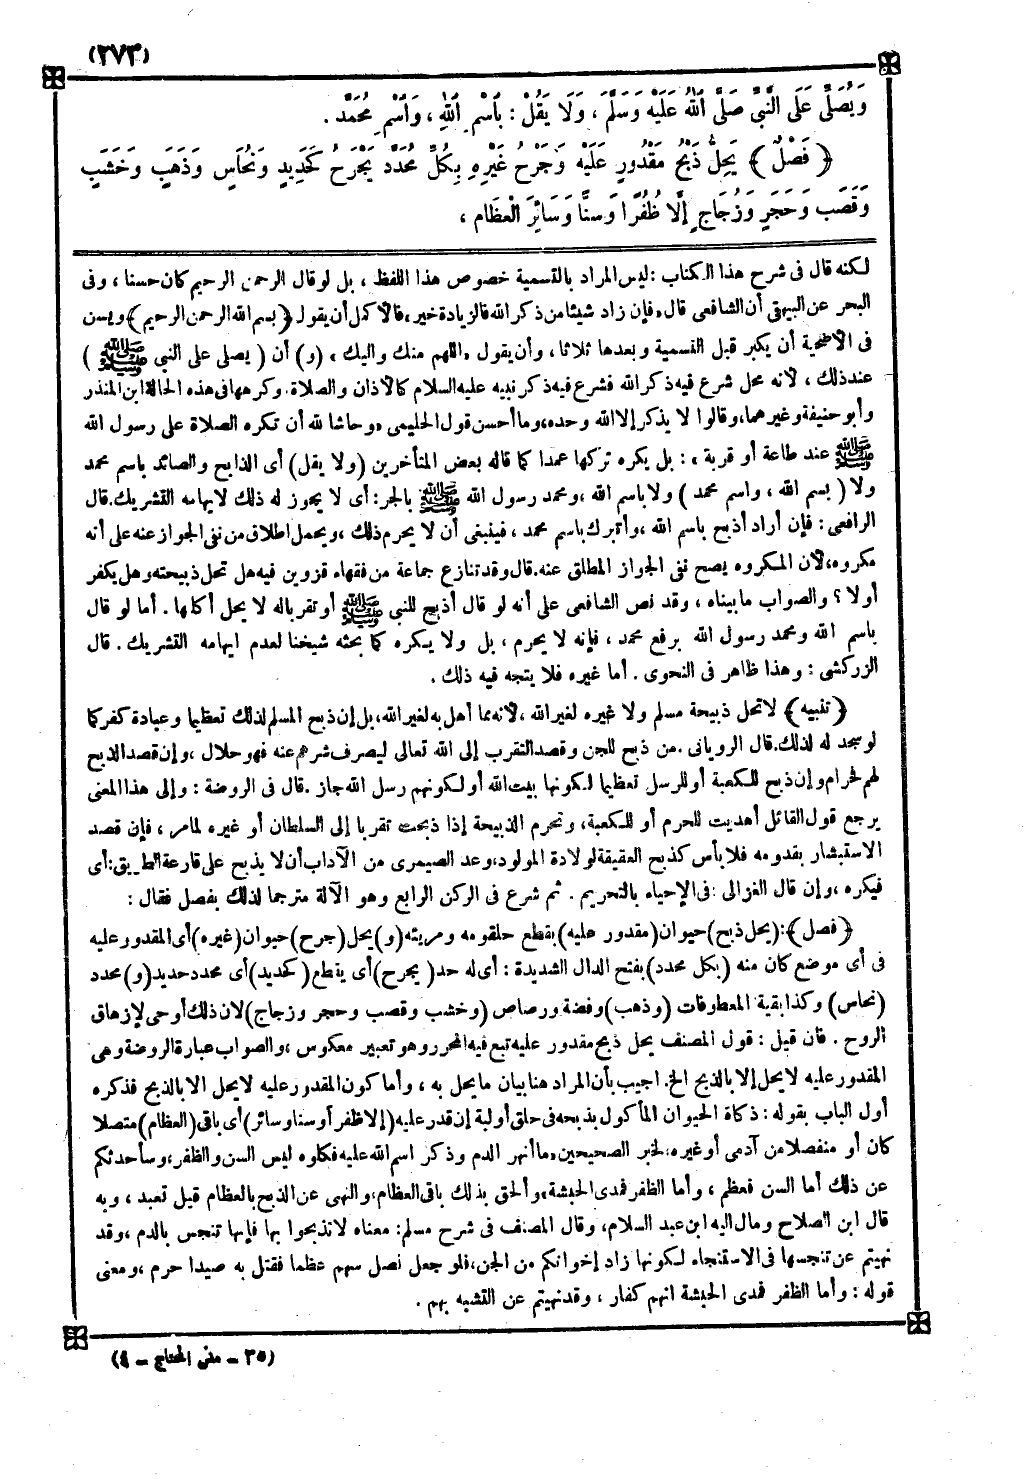 (٢٧٣)
وَيُصَلِّىَ عَلَى النَّبِىِّ صَلَّى اللهُ عَلَيْهِ وَسَلَّمَ ، وَلَا يَقُلْ : بِاسْمِ اللهِ ، وَاسْمِ مُحَمَّدٍ .
﴿ فَصْلٌ ﴾ يَحِلُّ ذَبْحُ مَقْدُورٍ عَلَيْهِ وَجَرْحُ غَيْرِهِ بِكُلِّ مُحَدَّدٍ يَجْرَحُ كَحَدِيدٍ وَنُحَاسٍ وَذَهَبٍ وَخَشَبٍ
وَقَصَبٍ وَحَجَرٍ وَزُجَاجٍ إِلَّا ظُفُرًا وَسِنًّا وَسَائِرَ الْعِظَامِ ،
لكنه قال فى شرح هذا الكتاب : ليس المراد بالتسمية خصوص هذا اللفظ ، بل لو قال الرحمن الرحيم كان حسنا ، وفى
البحر عن البيهقى أن الشافعى قال «فإن زاد شيئا من ذكر الله فالزيادة خير» فالأكمل أن يقول ﴿ بسم الله الرحمن الرحيم ﴾ ويسن
فى الأضحية أن يكبر قبل التسمية وبعدها ثلاثا ، وأن يقول «اللهم منك وإليك» (و) أن ( يصلى على النبى ﷺ )
عند ذلك ، لأنه محل شرع فيه ذكر الله فشرع فيه ذكر نبيه عليه السلام كالأذان والصلاة . وكرهها فى هذه الحالة ابن المنذر
وأبو حنيفة وغيرهما ، وقالوا لا يذكر إلا الله وحده ، وما أحسن قول الحليمى «وحاشا لله أن تكره الصلاة على رسول الله
ﷺ عند طاعة أو قربة» : بل يكره تركها عمدا كما قاله بعض المتأخرين (ولا يقل) أى الذابح والصائد باسم محمد
ولا ( بسم الله ، واسم محمد ) ولا باسم الله ، ومحمد رسول الله ﷺ بالجر : أى لا يجوز له ذلك لايهامه التشريك . قال
الرافعى : فإن أراد أذبح باسم الله ، وأتبرك باسم محمد ، فينبغى أن لا يحرم ذلك ، ويحمل اطلاق من نفى الجواز عنه على أنه
مكروه ، لأن المكروه يصح نفى الجواز المطلق عنه . قال وقد تنازع جماعة من فقهاء قزوين فيه هل تحل ذبيحته وهل يكفر
أولا ؟ والصواب ما بيناه ، وقد نص الشافعى على أنه لو قال أذبح للنبى ﷺ أو تقربا له لا يحل أكلها . أما لو قال
باسم الله ومحمد رسول الله برفع محمد ، فإنه لا يحرم ، بل ولا يكره كما بحثه شيخنا لعدم ايهامه التشريك . قال
الزركشى : وهذا ظاهر فى النحوى . أما غيره فلا يتجه فيه ذلك .
﴿ تنبيه ﴾ لا تحل ذبيحة مسلم ولا غيره لغير الله ، لأنه مما أهل به لغير الله ، بل إن ذبح المسلم لذلك تعظيما وعبادة كفر كما
لو سجد له لذلك . قال الرويانى . من ذبح للجن وقصد التقرب إلى الله تعالى ليصرف شرهم عنه فهو حلال ، وإن قصد الذبح
لهم فحرام وإن ذبح للكعبة أو للرسل تعظيما لكونها بيت الله أو لكونهم رسل الله جاز . قال فى الروضة : وإلى هذا المعنى
يرجع قول القائل أهديت للحرم أو للكعبة ، وتحرم الذبيحة إذا ذبحت تقربا إلى السلطان أو غيره لما مر ، فإن قصد
الاستبشار بقدومه فلا بأس كذبح العقيقة لولادة المولود ، وعد الصيمرى من الآداب أن لا يذبح على قارعة الطريق : أى
فيكره ، وإن قال الغزالى : فى الإحياء بالتحريم . ثم شرع فى الركن الرابع وهو الآلة مترجما لذلك بفصل فقال :
﴿ فصل ﴾ : (يحل ذبح) حيوان (مقدور عليه) بقطع حلقومه ومريئه (و) يحل (جرح) حيوان (غيره) أى المقدور عليه
فى أى موضع كان منه (بكل محدد) بفتح الدال الشديدة : أى له حد ( يجرح ) أى يقطع ( كحديد ) أى محدد حديد (و) محدد
(نحاس) وكذا بقية المعطوفات (وذهب) وفضة ورصاص (وخشب وقصب وحجر وزجاج) لأن ذلك أوحى لإزهاق
الروح . فان قيل : قول المصنف يحل ذبح مقدور عليه تبع فيه المحرر وهو تعبير معكوس ، والصواب عبارة الروضة وهى
المقدور عليه لا يحل إلا بالذبح الخ . أجيب بأن المراد هنا بيان ما يحل به ، وأما كون المقدور عليه لا يحل الا بالذبح فذكره
أول الباب بقوله : ذكاة الحيوان المأكول بذبحه فى حلق أو لبة إن قدر عليه (إلا ظفر أو سنا وسائر) أى باقى (العظام) متصلا
كان أو منفصلا من آدمى أو غيره ، لخبر الصحيحين «ما أنهر الدم وذكر اسم الله عليه فكلوه ليس السن والظفر ، وسأحدثكم
عن ذلك أما السن فعظم ، وأما الظفر فمدى الحبشة» وألحق بذلك باقى العظام ، والنهى عن الذبح بالعظام قيل تعبد ، وبه
قال ابن الصلاح ومال اليه ابن عبد السلام ، وقال المصنف فى شرح مسلم : معناه لا تذبحوا بها فإنها تنجس بالدم ، وقد
نهيتم عن تنجسها فى الاستنجاء لكونها زاد إخوانكم من الجن ، فلو جعل نصل سهم عظما فقتل به صيدا حرم ، ومعنى
قوله : وأما الظفر فمدى الحبشة انهم كفار ، وقد نهيتم عن التشبه بهم .
(٣٥ - مغنى المحتاج - ٤)